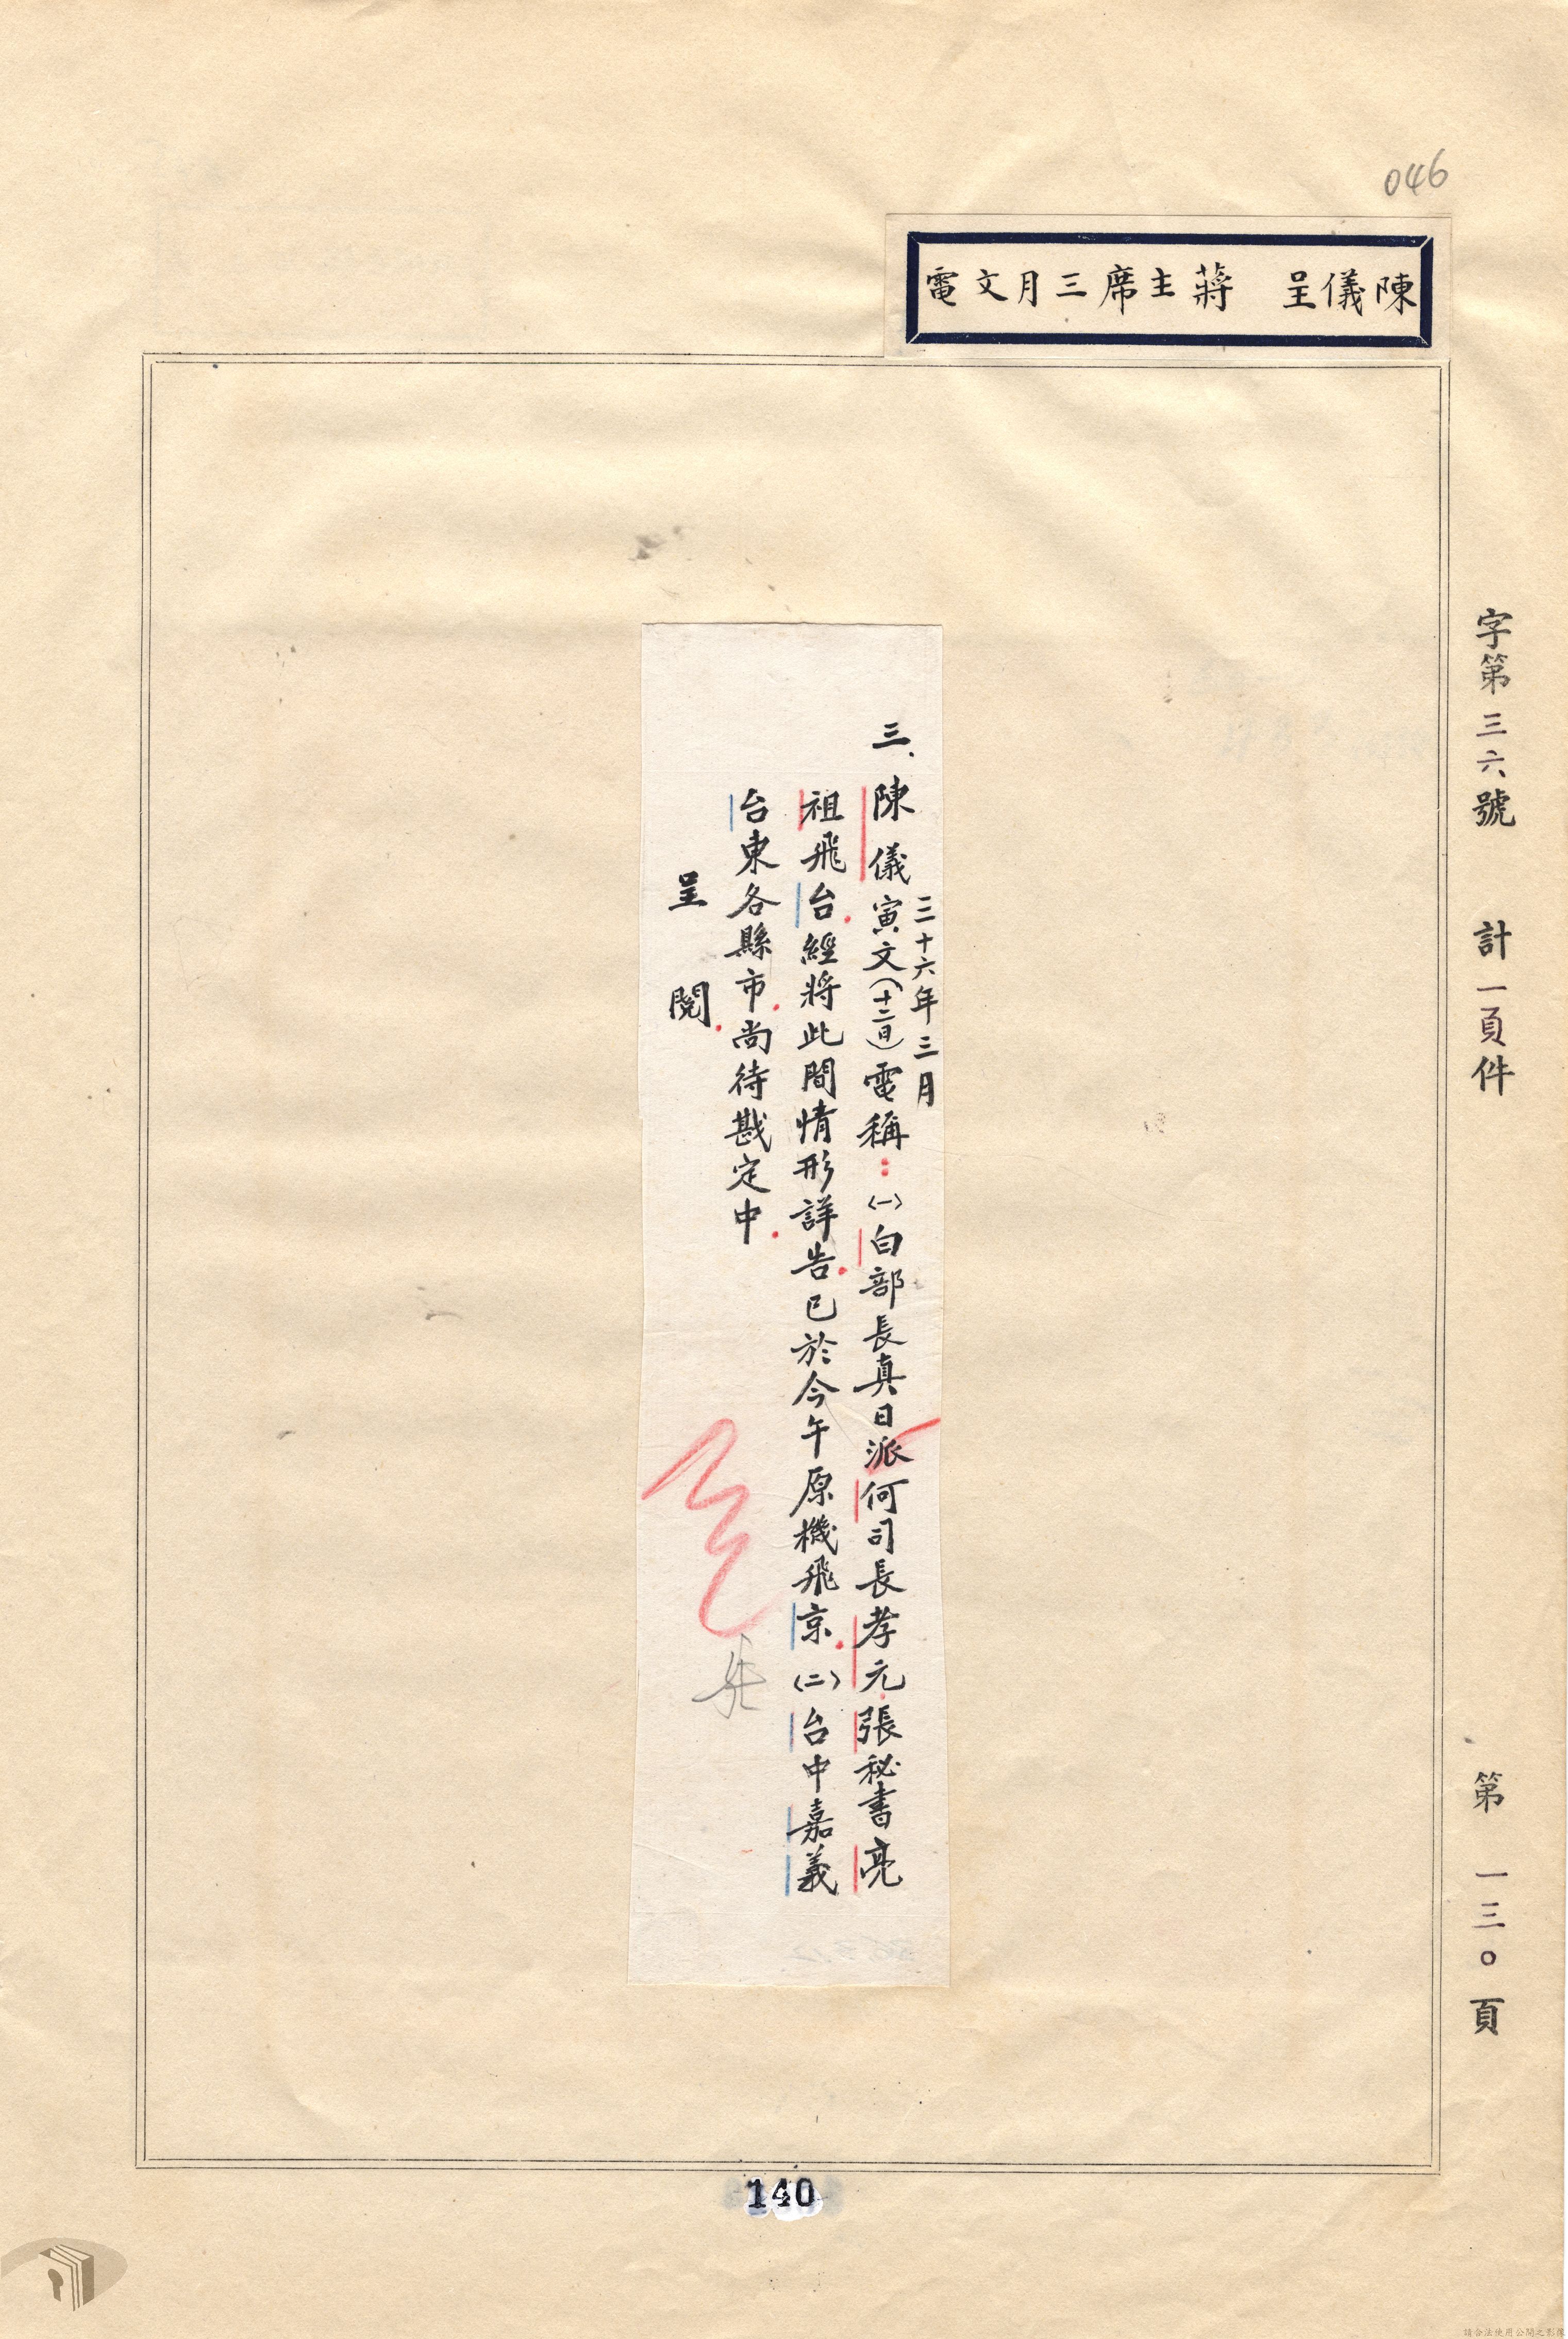 046
陳儀呈　蔣主席三月文電
字第三六號　計一頁件　第一三〇頁
三十六年三月
三、陳儀寅文(十二日)電稱：㈠白部長真日派何司長孝元張秘書亮
祖飛台經將此間情形詳告已於今午原機飛京㈡台中嘉義
台東各縣市尚待戡定中
呈閱
140
請合法使用公開之影像